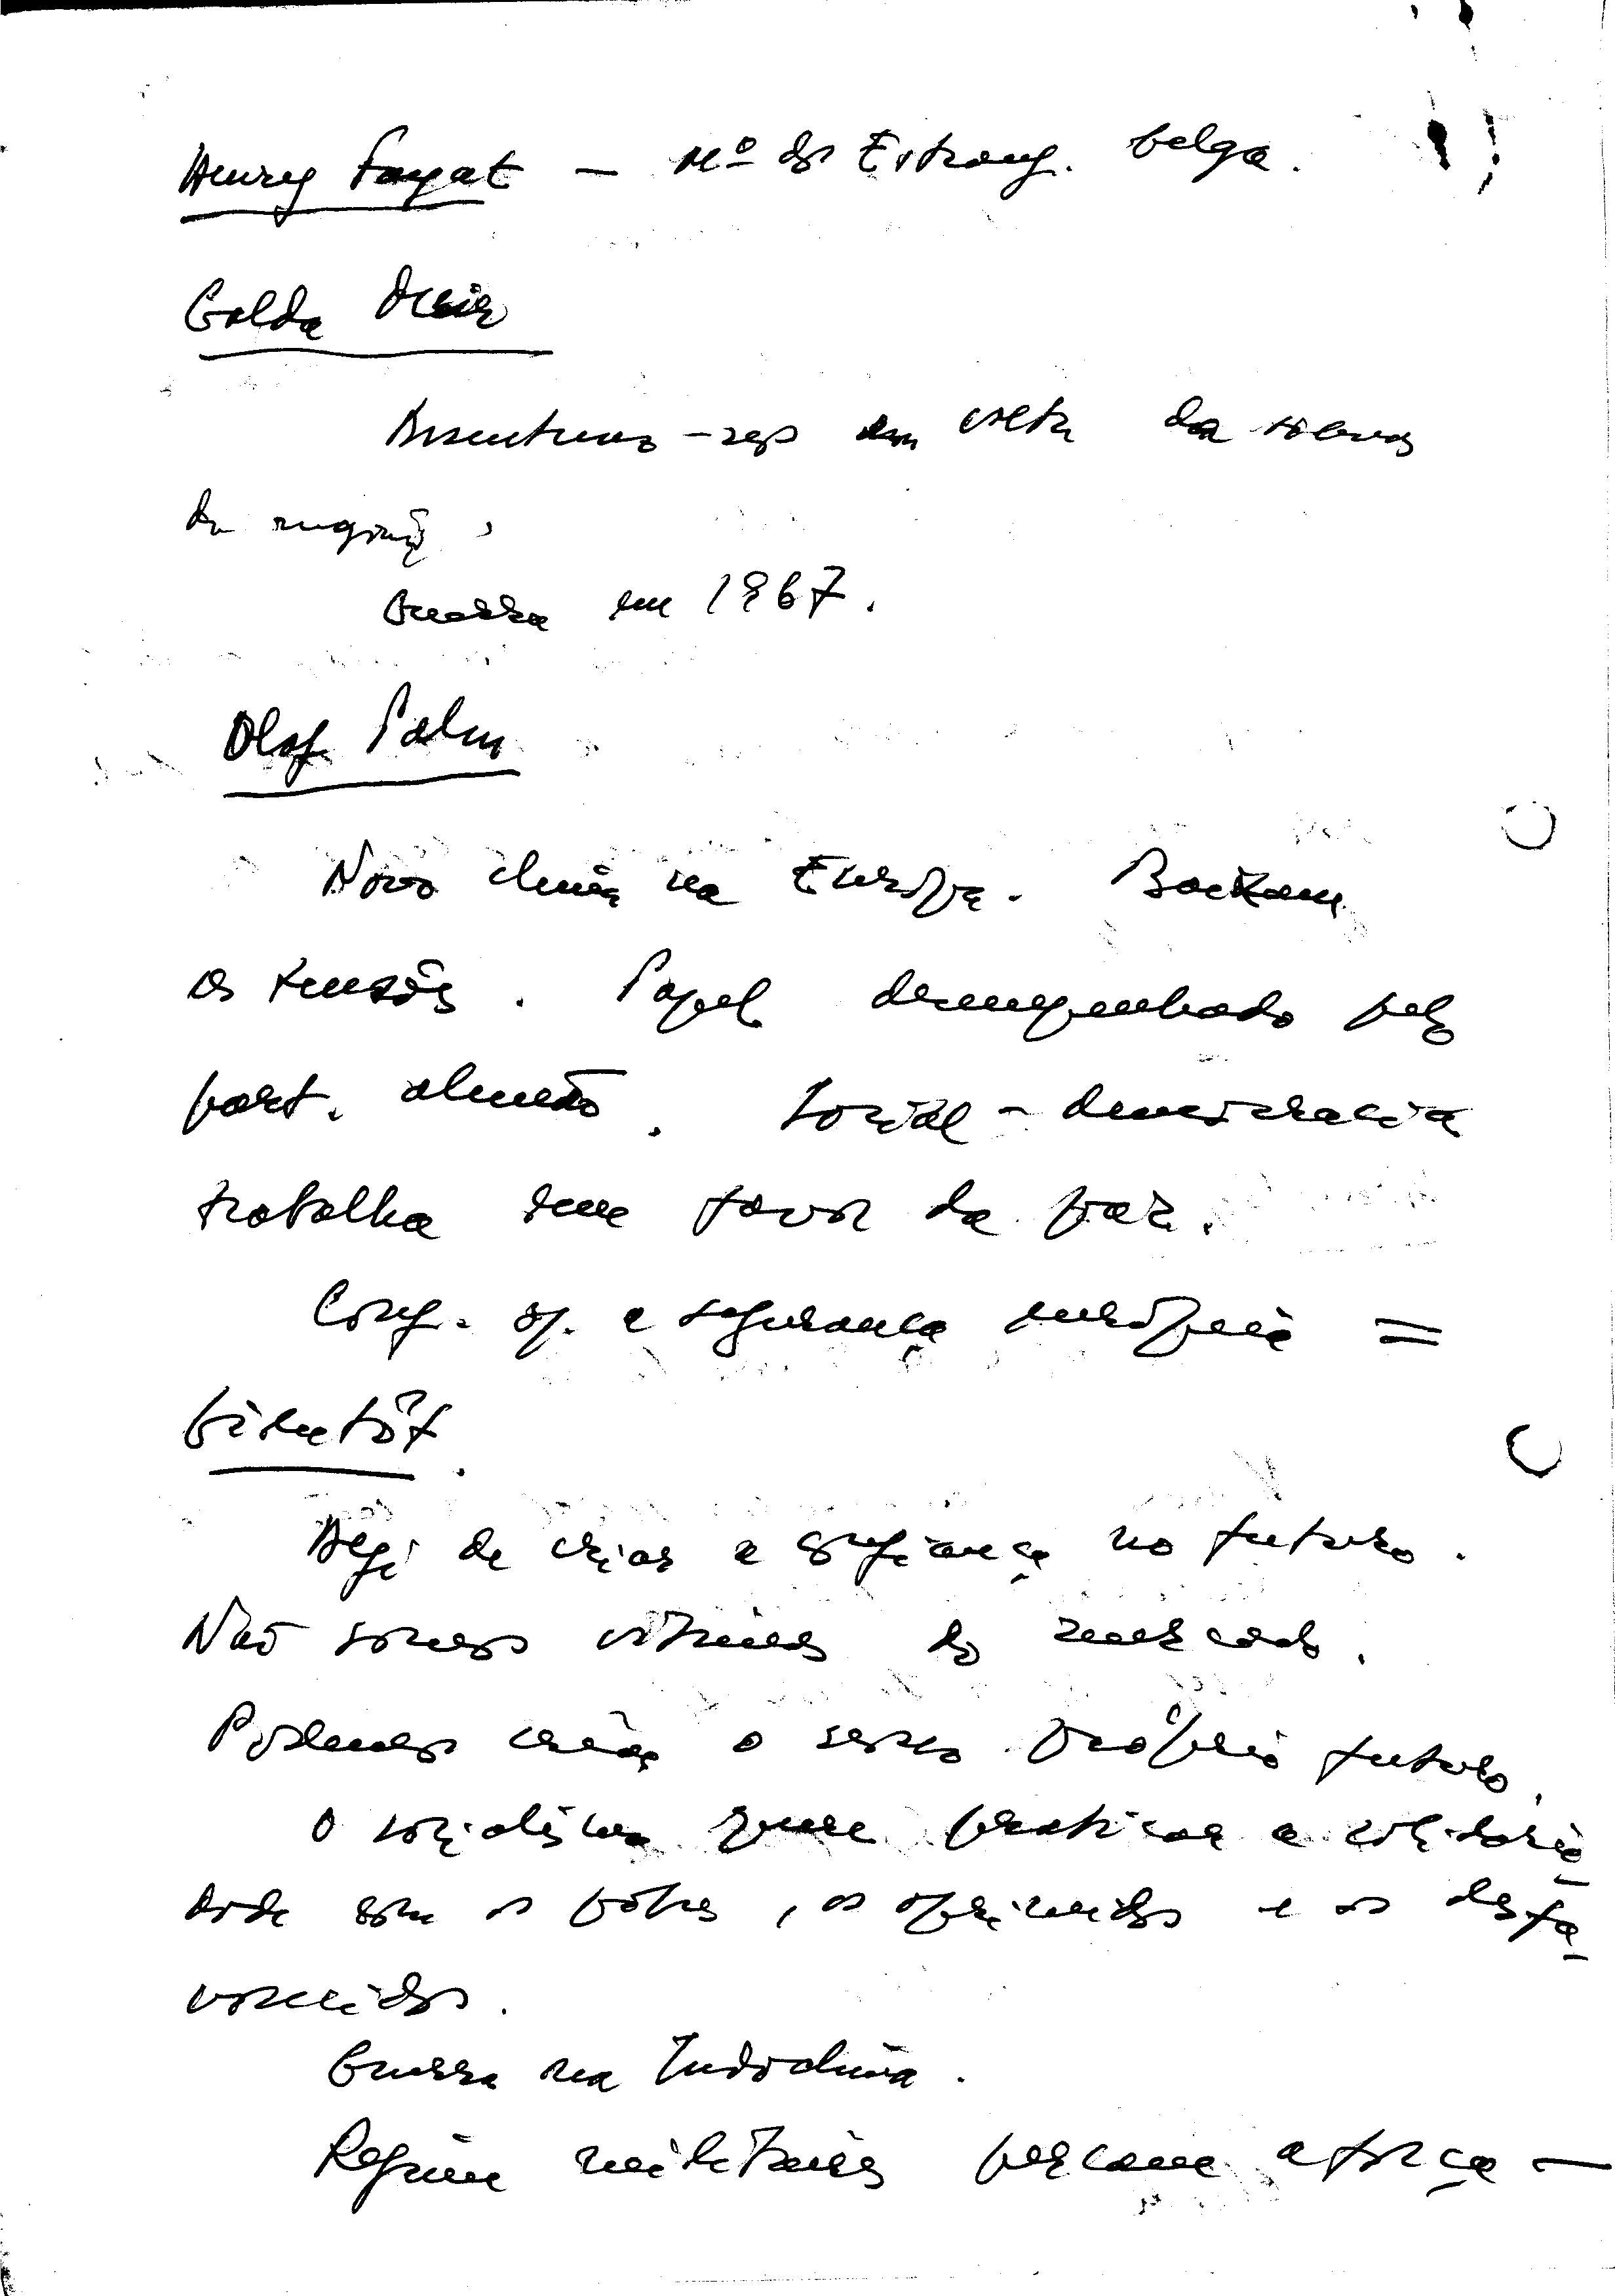 Henry Fayat — Mº dos Estrang. belga.
Golda Meir
em volta da
da região.
Guerra em 1967.
Olof Palm
Novo clima na Europa. Baixam
as tensões. Papel desempenhado pelo
part. alemão. Social-democracia
trabalha em favor da paz.
Conf. op. e segurança europeia =
bientôt.
Há de criar a confiança no futuro.
Não somos vítimas do mercado.
Podemos criar o nosso próprio futuro.
O socialismo quer praticar a solidarie-
dade com os pobres, os oprimidos e os desfa-
vorecidos.
Guerra na Indochina.
Regime militares a força —